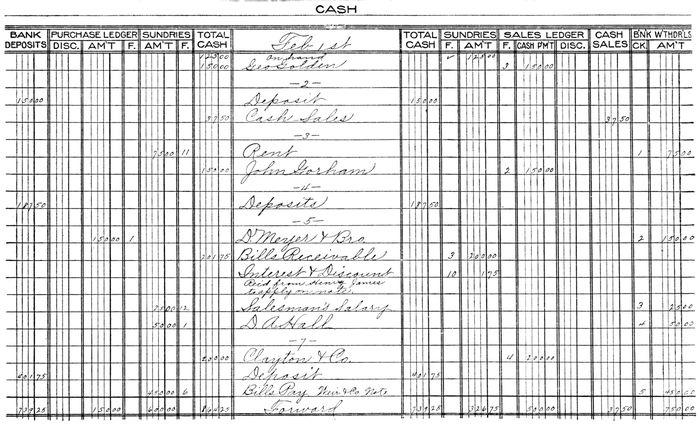 CASH
BANK DEPOSITS PURCHASE LEDGER DISC. AM'T F. SUNDRIES AM'T F. TOTAL CASH Feb 1st TOTAL CASH SUNDRIES F. AM'T SALES LEDGER F. CASH P'M'T DISC. CASH SALES BNK W'THDR'LS CK. AM'T
125 00 On hand ✓ 125 00
150 00 Geo Golden 3 150 00
—2—
150 00 Deposit 150 00
37 50 Cash Sales 37 50
—3—
75 00 11 Rent 1 75 00
150 00 John Gorham 2 150 00
—4—
187 50 Deposits 187 50
—5—
150 00 1 D. Meyer & Bro 2 150 00
201 75 Bills Receivable 3 200 00
Interest & Discount 10 1 75
Rec'd from Henry James
to apply on note
25 00 12 Salesman's Salary 3 25 00
50 00 1 D. A. Hall 4 50 00
—7—
200 00 Clayton & Co. 4 200 00
401 75 Deposit 401 75
450 00 6 Bills Pay Weir & Co. Note 5 450 00
739 25 150 00 600 00 864 25 Forward 739 25 326 75 500 00 37 50 750 00